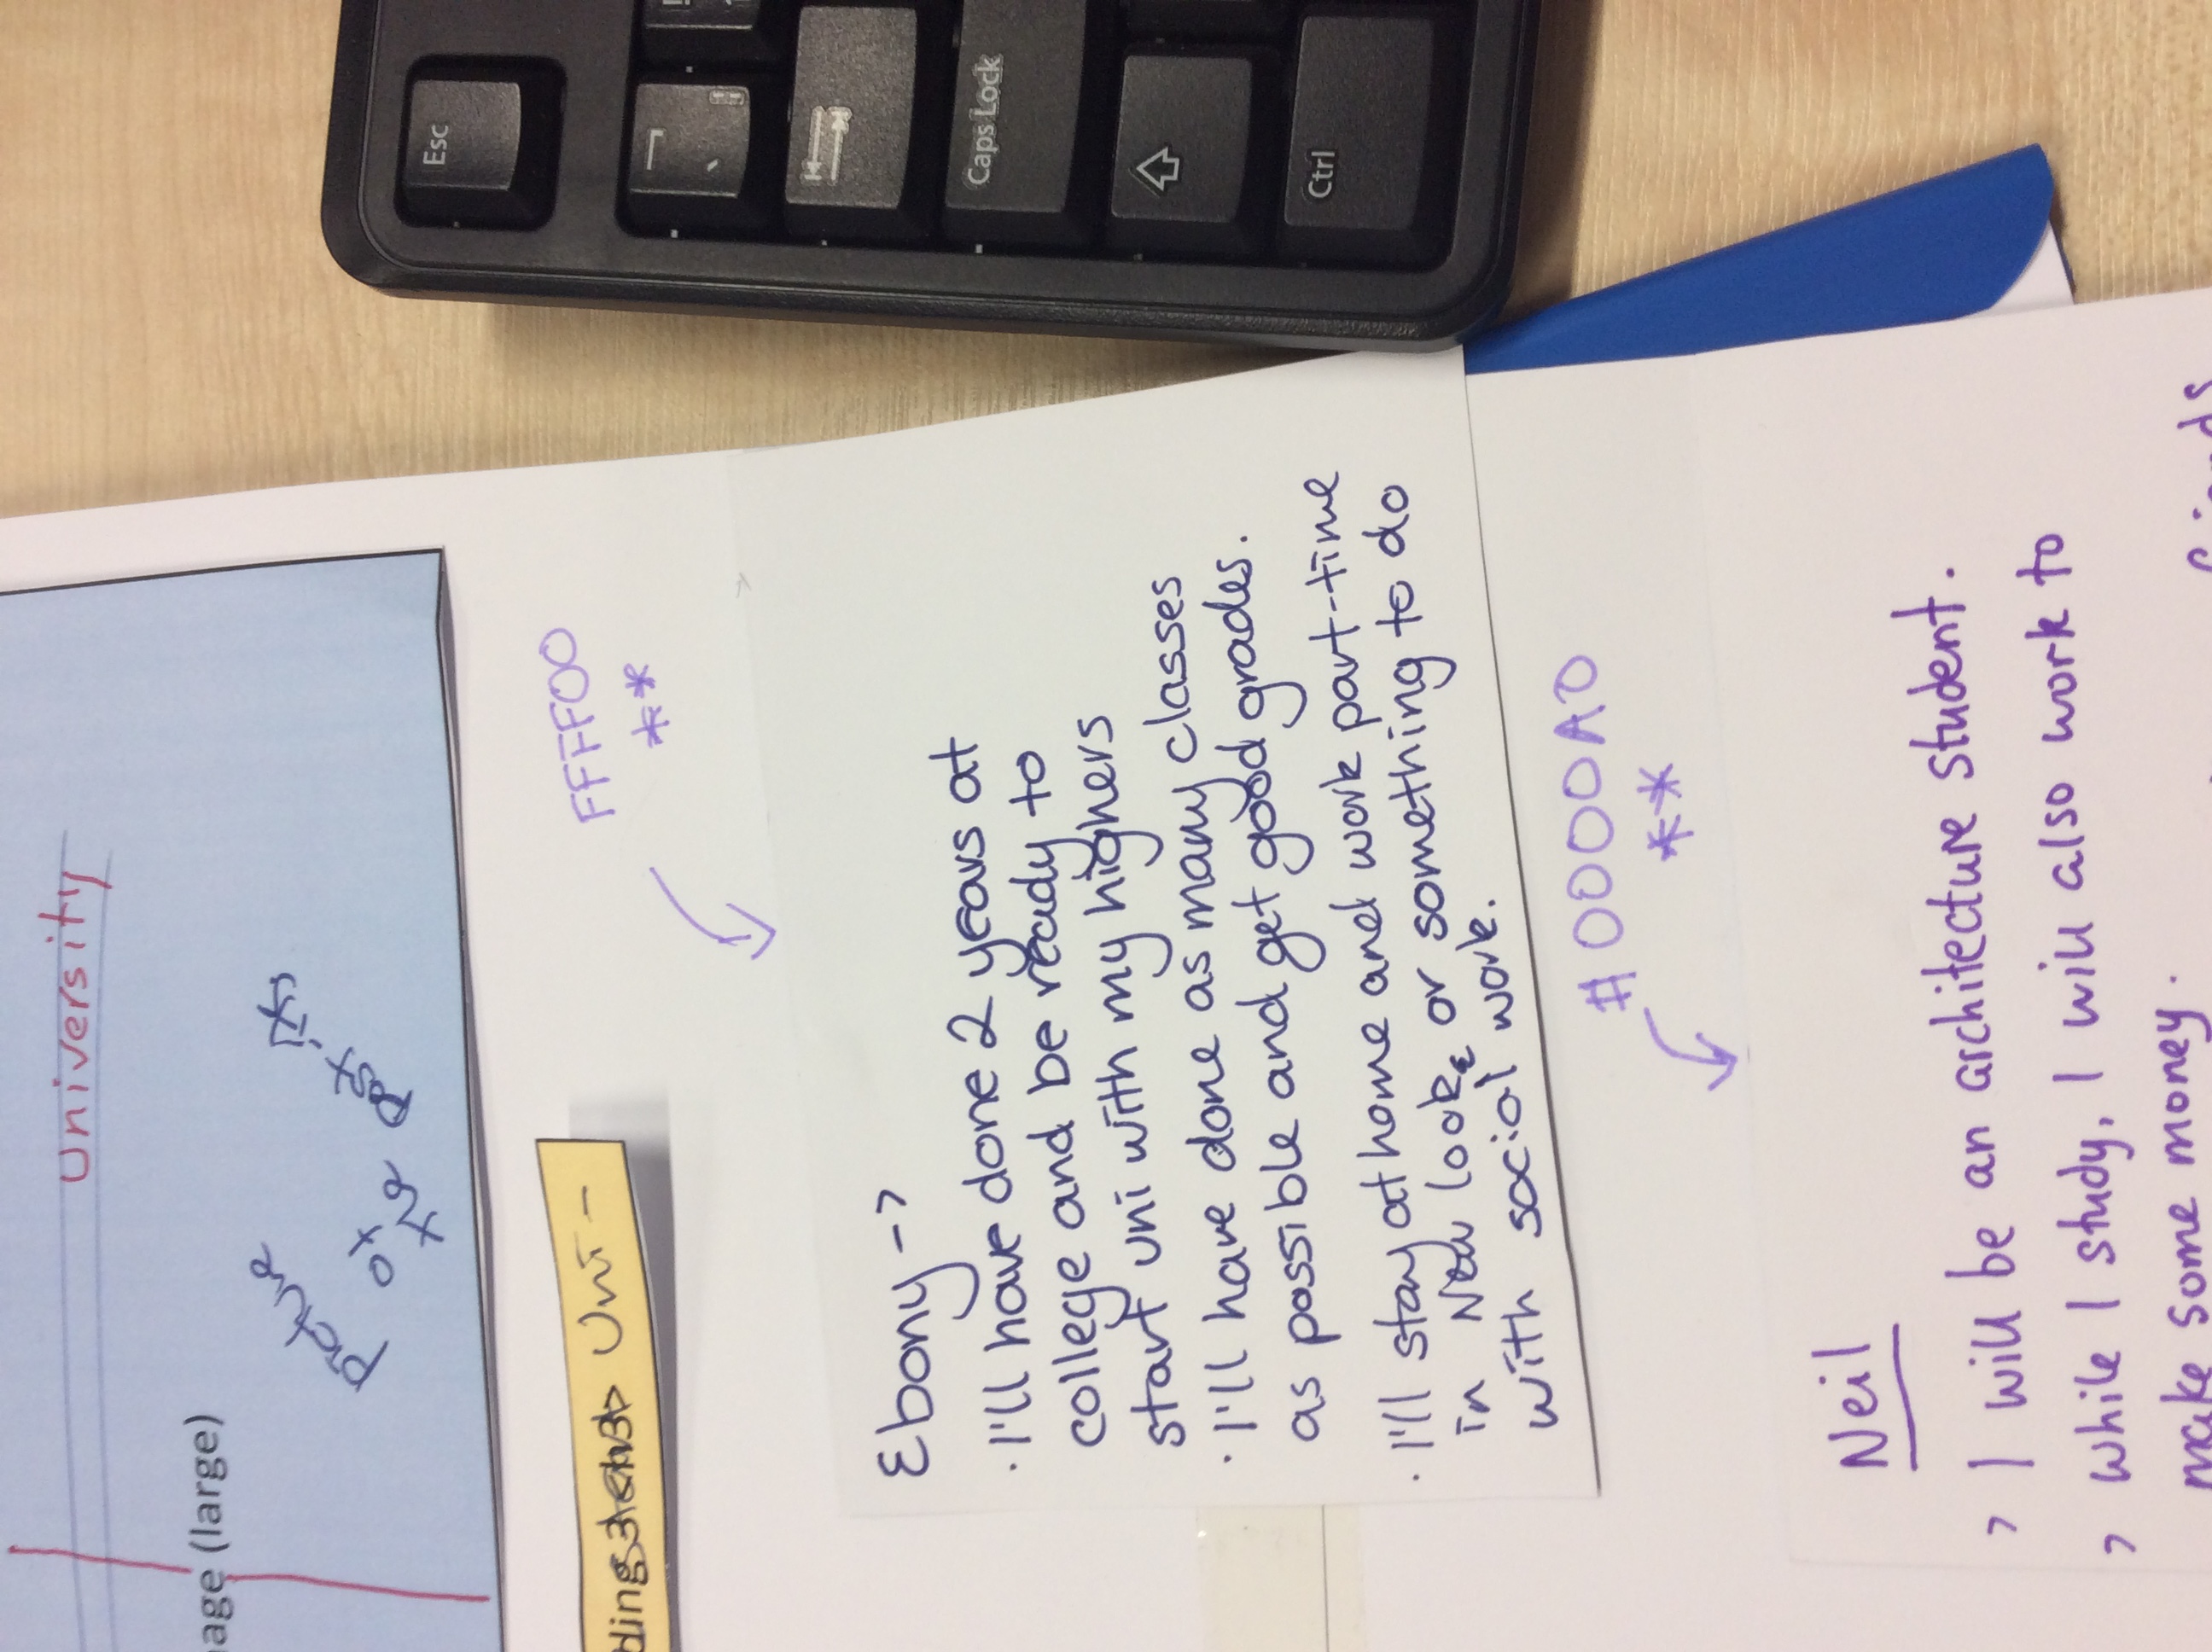 University
age (large)
picture
of
the
post-its
ding 3 <h3> Uni -
FFFF00
**
Ebony ->
· I'll have done 2 years at
college and be ready to
start uni with my highers
· I'll have done as many classes
as possible and get good grades.
· I'll stay at home and work part-time
in New look, or something to do
with social work.
#0000A0
**
Neil
> I will be an architecture student.
> While I study, I will also work to
make some money.
friends
Esc
Caps Lock
Ctrl